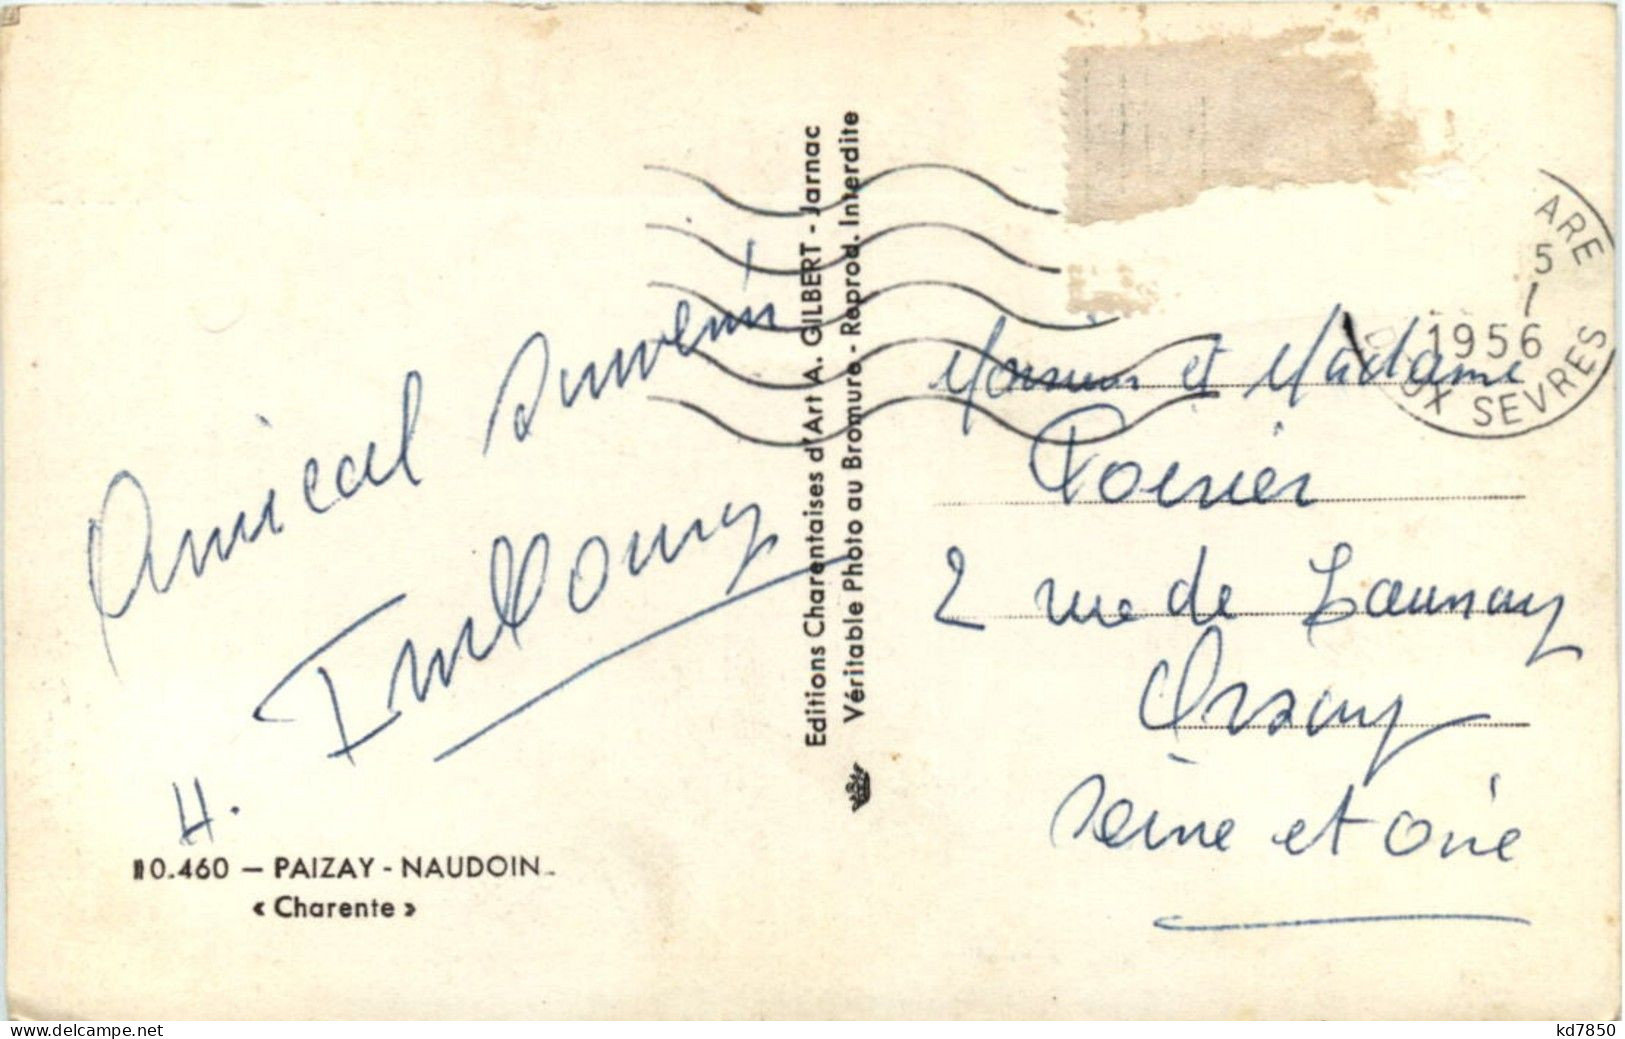 Amical souvenir
H.
110.460 – PAIZAY - NAUDOIN
« Charente »
Editions Charentaises d'Art A. GILBERT - Jarnac
Véritable Photo au Bromure - Reprod. Interdite
ARE
5
1
1956
DEUX SEVRES
Monsieur et Madame
Poirier
2 rue de Launay
Orsay
Seine et Oise
www.delcampe.net
kd7850